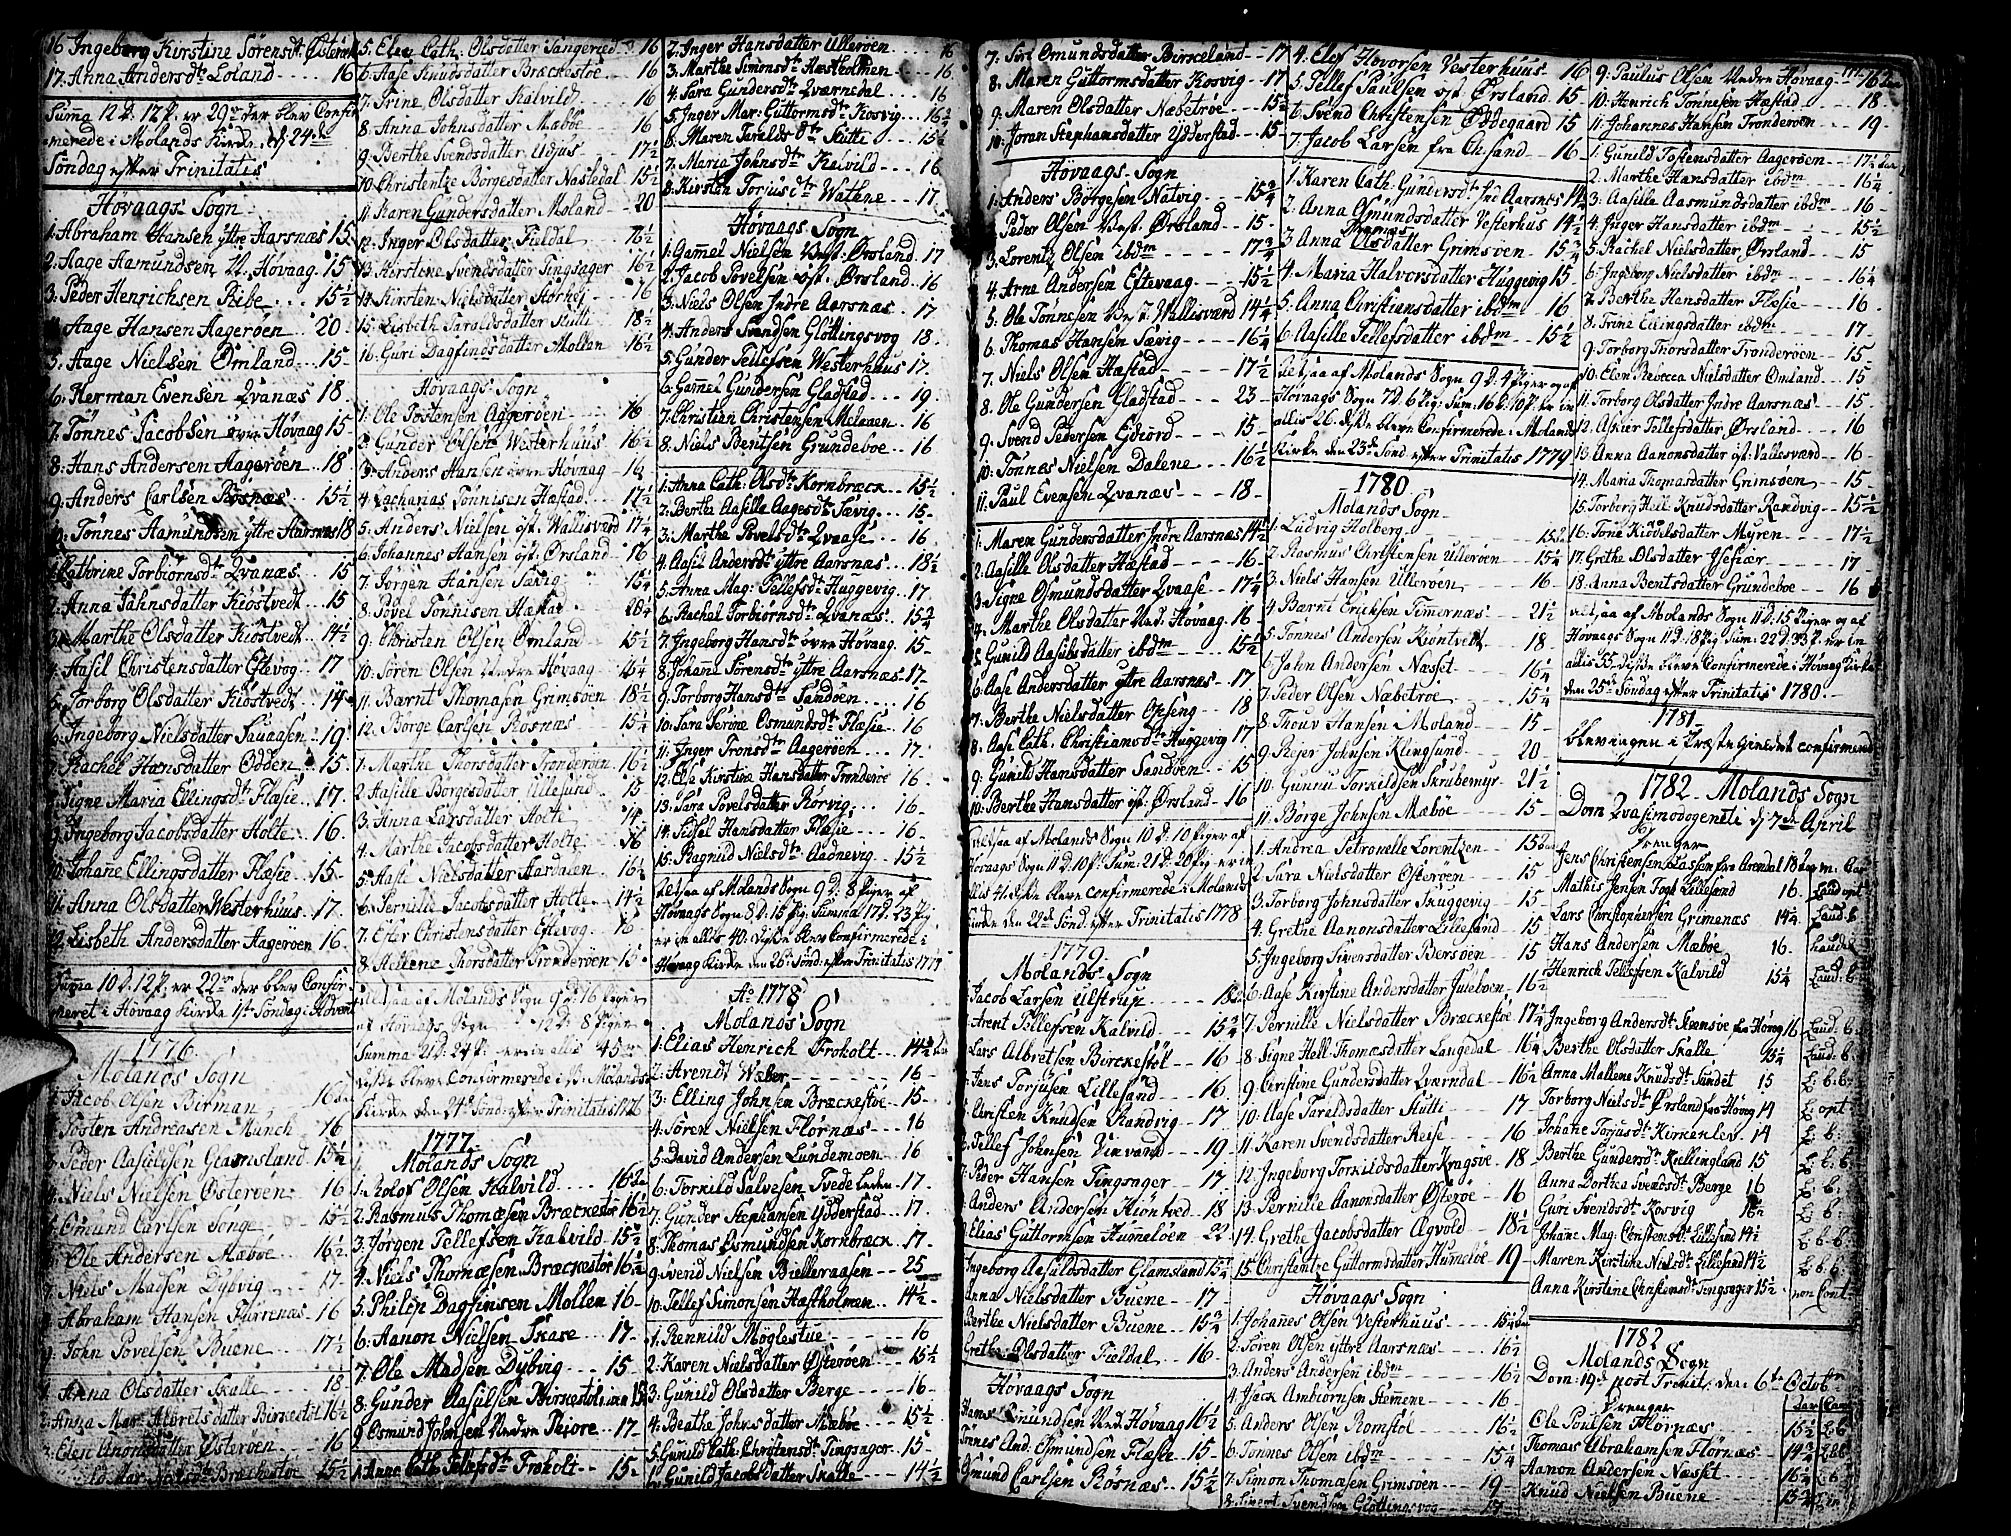 16 Ingeborg Kirstine Sörensdt.
17. Anna Andersdt. Loland 16
Sum̃a 12 d. 17 p. er 29 der blev Confir
merede i Molands Kirke d. 24de
Söndag efter Trinitatis
Høvaags Sogn
1. Abraham Hansen yttre Aarsnæs 15
2. Aage Aamundsen N. Høvaag 15
3. Peder Henrichsen Ribe 15½
4. Aage Hansen Aagerøen 20
5. Aage Nielsen Ømland 15
6. Herman Evensen Qvanæs 18
7. Tønnes Jacobsen övre Høvaag 15
8. Hans Andersen Aagerøen 18
9. Anders Carlsen Røsnæs 15½
10. Tønnes Aamundsen yttre Aarsnæs 18
1. Cathrine Torbiörnsdt. Qvanæs 15
2. Anna Jahnsdatter Kiöstvedt 15
3. Marthe Olsdatter Kiöstvedt 14½
4. Aasil Christensdatter Eftevog 17
5. Torborg Olsdatter Kiöstvedt 14
6. Ingeborg Nielsdatter Sauaasen 19
7. Rachel Hansdatter Odden 15
8. Signe Maria Ellingsdt. Flæsie 17
9. Ingeborg Jacobsdatter Holte 16
10. Johañe Ellingsdatter Flæsie 15
11. Anna Olsdatter Westerhuus 17
12. Lisbeth Andersdatter Aagerøen 16
Sum̃a 10 d. 12 p. er 22 der blev Confir
meret i Høvaag Kirke 1st. Søndag i Advent
1776
Molands Sogn
1. Jacob Olsen Birman 16
2. Tosten Andreasen Munch 16
3. Peder Aasulsen Glamsland 15½
4. Niels Nielsen Østerøen 16
5. Omund Carlsen Songe 15½
6. Ole Andersen Mæbøe 16½
7. Niels Madsen Dybvig 17
8. Abraham Hansen Furrenæs 16
9. John Povelsen Buene 17½
1. Anna Olsdatter Skalle 18
2. Anna Mar. Albretsdatter Birkestöl 16½
3. Elen Anonsdatter Østerøen 16
Mar. Nielsdt. Bræckestøe 15½
5. Elen Cath: Olsdatter Sangereed 16
6. Aase Knudsdatter Bræckestøe 16
7. Trine Olsdatter Kalvild 16
8. Anna Johnsdatter Mæbøe 16
9. Berthe Svendsdatter Udjus 17½
10. Christentze Börgesdatter Nastedal 15½
11. Karen Gundersdatter Moland 20
12. Inger Olsdatter Fieldal 16½
13. Kirstene Svendsdatter Tingsager 16½
14. Kirsten Nielsdatter Storkej 16
15. Lisbeth Taraldsdatter Stutti 18½
16. Guri Dagfindsdatter Mollen 16½
Høvaags Sogn
1. Ole Tostensen Aggerøen 16
2. Gunder Olsen Westerhuus 16½
3. Anders Hansen övre Høvaag 16
4. Zacharias Tönnisen Hæstad 17½
5. Anders Nielsen öst. Wallisværd 17¼
6. Johannes Hansen öst. Ørsland 16
7. Jørgen Hansen Sævig 15¼
8. Povel Tönnisen Hæstad
9. Christen Olsen Ømland 15½
10. Sören Olsen nedre Høvaag
11. Bærnt Thomasen Grimsøen 18½
12. Börge Carlsen Røsnæs 15¼
1. Marthe Thorsdatter Tronderøen 16½
2. Aasille Borgesdatter Ullesund 15
3. Anna Larsdatter Holte 14½
4. Marthe Jacobsdatter Holte 16
5. Aaste Nielsdatter Aardalen 16½
6. Pernille Jacobsdatter Holte 14½
7. Ester Christensdatter Eftevog 16
8. Hellene Thorsdatter Tronderøen 15
altsaa af Molands Sogn 9 d. 16 Piger
af Høvaags Sogn 12 d. 8 Piger
Summa 21 d. 24 p. er in alles 45
disse bleve Confirmerede i Molands
Kirke den 21de Sönd. efter Trinitatis 1776
1777
Molands Sogn
1. Rolof Olsen Kalvild 16
2. Rasmus Thomæsen Bræckestøe 16½
3. Jørgen Tellefsen Kalvild 15½
4. Niels Thomæsen Bræckestöe 16½
5. Philip Dagfinsen Mollen 16
6. Aanon Nielsen Skase 17
7. Ole Madsen Dybvig 15
8. Gunder Aasulsen Birkestölen 15
9. Osmund Johnsen Nedre Tiøre 17
1. Anne Cath. Tellefsdt. Froholt 15
2. Inger Hansdatter Ullerøen 16
3. Marthe Simonsdt. Hæstholmen 16
4. Sara Gundersdt. Qværnedal 16
5. Inger Mar: Guttormsdt. Kosvig 16½
6. Maren Taralds dt. Stutte 15½
7. Maria Johnsdt. Kalvild 16
8. Kirsten Torjusdtr. Watne 17
Høvaags Sogn
1. Gam̃el Nielsen Vest. Ørsland 17
2. Jacob Povelsen øst. Ørsland 16
3. Niels Olsen Indre Aarsnæs 17
4. Anders Svendsen Glöttingsvog 18
5. Gunder Tellefsen Westerhuus 17
6. Gam̃el Gundersen Gladstad 19
7. Christien Christensen Molanen 16
8. Niels Bentsen Grundeboe 16
1. Anna Cath: Olsdt. Kornbræck 15½
2. Berthe Aasille Aagesdt. Sævig 15
3. Marthe Povelsdt. Qvaase 16
4. Aasil Andersdt. yttre Aarsnæs 18½
5. Anna Mag: Tellefsdt. Huggevig 17
6. Rachel Torbiörnsdt. Qvanæs 15¾
7. Ingeborg Hansdt. övre Høvaag 15
8. Johañe Sörensdt. yttre Aarsnæs 17
9. Torborg Hansdt. Sandøen 16
10. Sara Serine Osmundsdt. Flæsie 16
11. Inger Tronsdt. Aagerøen 17
12. Else Kirstine Hansdatter Tronderøe 16
13. Sara Povelsdatter Rörvig 16
14. Sidsel Hansdatter Flæsie 16
15. Ragnild Nielsdt. Aadnevig 15½
altsaa af Molands Sogn 9 d: 8 Piger af
Høvaags Sogn 8 d. 15 pig. Summa 17 d. 23 pig
er in alles 40. disse blev Confirmerede i
Høvaag Kirke den 26de Sönd. efter Trinitatis 1777
Ao 1778
Molands Sogn
1. Elias Henrich Froholt 14¾
2. Arendt Wæber 16
3. Elling Johnsen Bræckestøe 15
4. Sören Nielsen Flornæs 16
5. David Andersen Lundemoen 16
6. Torkild Salvesen Tvede 17
7. Gunder Stephansen Ydderstad 17
8. Thomas Osmundsen Kornbræck 17
9. Svend Nielsen Bielleraasen 25
10. Tellef Simonsen Hæstholmen 14½
1. Rennild Møglestue 16
2. Karen Nielsdatter Østerøen 15½
3. Gunild Olsdatter Berge 16
4. Beathe Johnsdatter Mæbøe 15½
5. Gunild Cath: Christensdt. Tingsager 15
6. Gunild Jacobsdatter Skalle 14½
7. Siri Omundsdatter Birkeland 17
8. Maren Guttormsdatter Kosvig 17
9. Maren Olsdatter Næbetrøe 15½
10. Joran Stephansdatter Ydderstad 15
Høvaags Sogn
1. Anders Börgesen Natvig 15¾
Peder Olsen Vest. Ørsland 15
3. Lorentz Olsen ibdm 17¾
4. Arne Andersen Eftevaag 15½
5. Ole Tønnesen Vest. Wallisværd 14¼
6. Thomas Hansen Sævig 16¼
7. Niels Olsen Hæstad 17½
8. Ole Gundersen Gladstad 23
9. Svend Pedersen Eidiord 15
10. Tønnes Nielsen Dalene 16½
11. Paul Evensen Qvanæs 18
1. Maren Gundersdatter Indre Aarsnæs 14½
2. Aasille Olsdatter Hæstad 16
3. Signe Osmundsdatter Qvaase 17¼
4. Marthe Olsdatter Ned. Høvaag 16
5. Gunild Aasulsdatter ibdm 15½
6. Aase Andersdatter yttre Aarsnæs 17
7. Berthe Nielsdatter Opseng 18
8. Aase Cath: Christiansdt. Huggevig 17
9. Gunild Hansdatter Sandøen 15
10. Berthe Hansdatter öst. Ørsland 16
altsaa af Molands Sogn 10 d. 10 Piger af
Høvaags Sogn 11 d. 10 p. Sum. 21 d. 20 pig er in
alles 41 disse bleve confirmerede i Molands
Kirke den 22de Sönd. efter Trinitatis 1778
1779
Molands Sogn
Jacob Larsen Ulstrup 18
Arent Tellefsen Kalvild 15¾
Lars Albretsen Birckestöl 16
Jens Torjusen Lillesand 16
Christen Knudsen Randvig 17
Tellef Johnsen Vinvand 19
7. Peder Hansen Tingsager 17
Anders Andersen Kiöntved 18
Elias Guttormsen Hum̃eløen 22
Ingeborg Aasulsdatter Glamsland 15¼
Anna Nielsdatter Buene 17
Berthe Nielsdatter Buene 15¾
Grethe Olsdatter Fieldal 16
Høvaags Sogn
Hans Omundsen Ned. Høvaag 16½
Tønnes And. Osmundsen Flæsie 15
Omund Carlsen Røsnæs 15½
4. Elef Hovorsen Vesterhuus 16
5. Tellef Paulsen øst. Ørsland 15
6. Svend Christensen Øddegaard 15
7. Jacob Larsen fra Chrsand 16
1. Karen Cath: Gundersdt. Ind Aarsnæs 14½
2. Anna Osmundsdatter Vesterhus 14½
3. Anna Thomas
Olsdatter Grimsøen 15¾
4. Maria Halvorsdatter Huggevig 15
5. Anna Christiansdatter ibdm 16
6. Aasille Tellefsdatter ibdm 15½
altsaa af Molands Sogn 9 d. 4 Piger og af
Høvaags Sogn 7 d. 6 Pig. Sum. 16 d. 10 p. er in
alles 26. disse bleve Confirmerede i Molands
Kirke den 23de Sönd. efter Trinitatis 1779
1780
Molands Sogn
1. Ludvig Holberg
2. Rasmus Christensen Ullerøen 15¼
3. Niels Hansen Ullerøen 16
4. Bærnt Ericksen Timernæs 21½
5. Tønnes Andersen Kiöntvett 18
6. Jahn Andersen Næsset 16¼
7. Peder Olsen Næbetrøe 15¼
8. Thouv Hansen Moland 15
9. Rejer Johnsen Klingsund 20
10. Gunru Torkildsen Skrubemyr 21½
11. Börge Johnsen Mæbøe 15
1. Andrea Petronelle Lorentzen 15
2. Sara Nielsdatter Østerøen 15
3. Torborg Johnsdatter Skuggevig 15
4. Grethe Aanonsdatter Lillesand 15
5. Ingeborg Sivensdatter Bersøen 15
6. Aase Kirstine Andersdatter Juleboen 16½
7. Pernille Nielsdatter Bræckestøe 17¼
8. Signe Hell: Thomæsdatter Langedal 16¼
9. Christine Gundersdatter Qværndal 16½
10. Aase Taraldsdatter Stutte 17
11. Karen Svendsdatter Reise 16
12. Ingeborg Torkildsdatter Kragsve 18
13. Pernille Aanonsdatter Østerøe 16
14. Grethe Jacobsdatter Ægvold 18½
15. Christentze Guttormsdatter Humeløe 19
Høvaags Sogn
1. Johañes Olsen Vesterhuus 15¼
2. Sören Olsen yttre Aarsnæs 16½
3. Anders Andersen ibdm 16½
4. Jack Ambiörnsen Stemene 16
5. Anders Olsen Romstøl 16½
6. Tønnes Olsen ibdm 15¼
7. Simon Thomæsen Grimsøen 19
8. Sivert Svendsen Glöttingsvog
9. Paulus Olsen Nedre Høvaag 16
10. Henrich Tønnesen Hæstad 18
11. Johannes Hansen Tronderøen 19
1. Gunild Tostensdatter Aagerøen 17½
2. Marthe Hansdatter ibdm 16¼
3. Aasille Aasmundsdatter ibdm 16
4. Inger Hansdatter ibdm 15½
5. Rachel Nielsdatter Ørsland 15
6. Ingeborg Nielsdatter ibdm 16¼
7. Berthe Hansdatter Flæsie 16
8. Trine Ellingsdatter ibdm 17
9. Torborg Thorsdatter Tronderøen 15
10. Elen Rebecca Nielsdatter Ømland 15
11. Torborg Olsdatter Indre Aarsnæs 15
12. Asber Tellefsdatter Ørsland 16
13. Anna Aanonsdatter öst. Vallesværd 16
14. Maria Thomasdatter Grimsøen 15
15. Torborg Hell: Knudsdatter Randvig 15½
16. Tone Kiödelsdatter Myren 17½
17. Grethe Olsdatter Isefiær 17
18. Anna Bentsdatter Grundeboe 16
altsaa af Molands Sogn 11 d. 15 Piger og af
Høvaags Sogn 11 d. 18 Pig. Sum: 22 d. 33 p. er in
alles 55 disse bleve Confirmerede i Høvaag Kirke
den 25de Söndag efter Trinitatis 1780
1781
blev ingen i Præstegieldet confirmered
1782 Molands Sogn
Dom Qvasimodogeneti d. 7de April
Drenger
Jens Christensen Lassen fra Arendal 18
Mathis Jensen Fogt Lillesand 16 Laud opt
Lars Christophersen Grimenæs 14¼ Laud. b.
Hans Andersen Mæbøe 16 Laudab
Henrich Tellefsen Kalvild 15¼ Laud: b
Ingeborg Andersdt. Steensøe fra Høvog 16 Laud: b.
Berthe Olsdatter Skalle 15¼ Laud: b.
Anna Mallene Knudsdt. Sundet 15 L: b. b.
Torborg Nielsdt. Ørsland fra Høvog 14 L: opt
Johane Torjusdt. Kirkenlev 14 L: b.
Berthe Gundersdt. Kiellingland 15 L: b. b.
Anna Dorthea Svendsdt. Berge 16 L: b.
Guri Svendsdt. Kosvig 16 L: b.
Johañe Mag: Christensdt. Lillesand 14½ L: b. b.
Maren Kirstine Nielsdt. Lillesand 14½ L: b. b.
Anna Kirstine Christensdt. Tingsager 15½ non Cont
1782
Molands Sogn
Dom: 19de post Trinit. den 6te Octobr
Drenger
Ole Poulsen Flörnæs 15½ L b
Thomas Abrahamsen Flörnæs 14¾ L b b
Aanon Andersen Næsset 16¼ L b
Knud Nielsen Buene 15¾